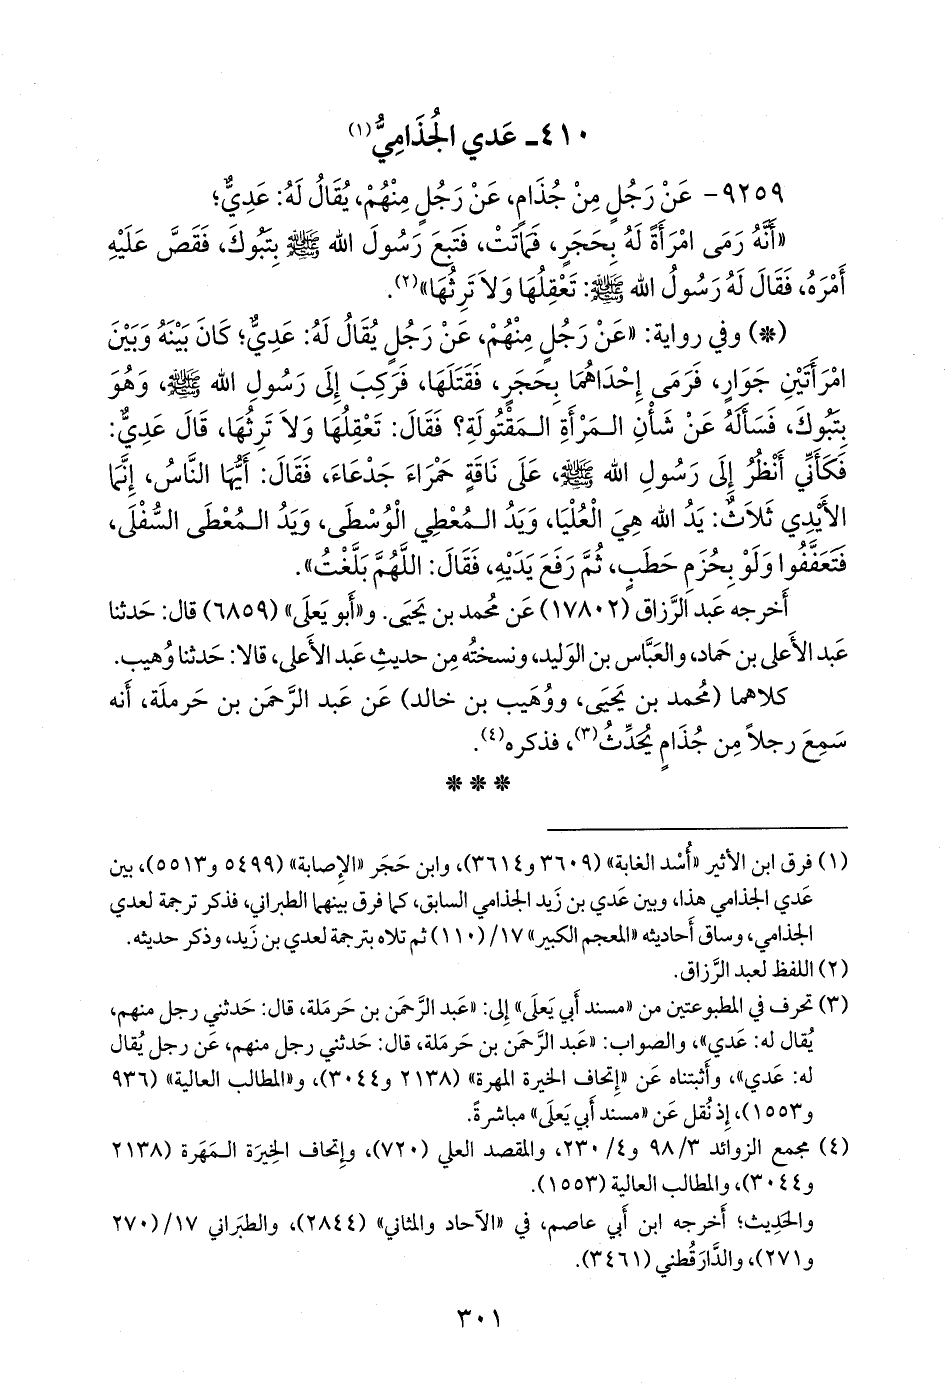 ٤١٠ـ عَدي الجُذَامِيُّ(١)
٩٢٥٩- عَنْ رَجُلٍ مِنْ جُذَامٍ، عَنْ رَجُلٍ مِنْهُمْ، يُقَالُ لَهُ: عَدِيٌّ؛
«أَنَّهُ رَمَى امْرَأَةً لَهُ بِحَجَرٍ، فَمَاتَتْ، فَتَبِعَ رَسُولَ الله ﷺ بِتَبُوكَ، فَقَصَّ عَلَيْهِ
أَمْرَهُ، فَقَالَ لَهُ رَسُولُ الله ﷺ: تَعْقِلُهَا وَلاَ تَرِثُهَا»(٢).
(*) وفي رواية: «عَنْ رَجُلٍ مِنْهُمْ، عَنْ رَجُلٍ يُقَالُ لَهُ: عَدِيٌّ؛ كَانَ بَيْنَهُ وَبَيْنَ
امْرَأَتَيْنِ جَوَارٍ، فَرَمَى إِحْدَاهُمَا بِحَجَرٍ، فَقَتَلَهَا، فَرَكِبَ إِلَى رَسُولِ الله ﷺ، وَهُوَ
بِتَبُوكَ، فَسَأَلَهُ عَنْ شَأْنِ الـمَرْأَةِ الـمَقْتُولَةِ؟ فَقَالَ: تَعْقِلُهَا وَلاَ تَرِثُهَا، قَالَ عَدِيٌّ:
فَكَأَنِّي أَنْظُرُ إِلَى رَسُولِ الله ﷺ، عَلَى نَاقَةٍ حَمْرَاءَ جَدْعَاءَ، فَقَالَ: أَيُّهَا النَّاسُ، إِنَّمَا
الأَيْدِي ثَلاَثٌ: يَدُ الله هِيَ الْعُلْيَا، وَيَدُ الـمُعْطِي الْوُسْطَى، وَيَدُ الـمُعْطَى السُّفْلَى،
فَتَعَفَّفُوا وَلَوْ بِحُزَمِ حَطَبٍ، ثُمَّ رَفَعَ يَدَيْهِ، فَقَالَ: اللَّهُمَّ بَلَّغْتُ».
أَخرجه عَبد الرَّزاق (١٧٨٠٢) عَن مُحمد بن يَحيَى. و«أَبو يَعلَى» (٦٨٥٩) قال: حَدثنا
عَبد الأَعلى بن حَماد، والعَبَّاس بن الوَليد، ونسختُه مِن حديثِ عَبد الأَعلى، قالا: حَدثنا وُهيب.
كلاهما (مُحمد بن يَحيَى، ووُهَيب بن خالد) عَن عَبد الرَّحمَن بن حَرملَة، أَنه
سَمِعَ رجلاً مِن جُذَامٍ يُحَدِّثُ(٣)، فذكره(٤).
***
(١) فرق ابن الأَثير «أُسْد الغابة» (٣٦٠٩ و٣٦١٤)، وابن حَجَر «الإِصابة» (٥٤٩٩ و٥٥١٣)، بين
عَدي الجذامي هذا، وبين عَدي بن زَيد الجذامي السابق، كما فرق بينهما الطبراني، فذكر ترجمة لعدي
الجذامي، وساق أحاديثه «المعجم الكبير» ١٧/ (١١٠) ثم تلاه بترجمة لعدي بن زَيد، وذكر حديثه.
(٢) اللفظ لعبد الرَّزاق.
(٣) تحرف في المطبوعتين من «مسند أَبي يَعلَى» إِلى: «عَبد الرَّحمَن بن حَرملة، قال: حَدثني رجل منهم،
يُقال له: عَدي»، والصواب: «عَبد الرَّحمَن بن حَرمَلة، قال: حَدثني رجل منهم، عَن رجل يُقال
له: عَدي»، وأَثبتناه عَن «إتحاف الخيرة المهرة» (٢١٣٨ و٣٠٤٤)، و«المطالب العالية» (٩٣٦
و١٥٥٣)، إِذ نُقل عَن «مسند أَبي يَعلَى» مباشرةً.
(٤) مجمع الزوائد ٩٨/٣ و٤/ ٢٣٠، والمقصد العلي (٧٢٠)، وإِتحاف الخِيرَة الـمَهَرة (٢١٣٨
و٣٠٤٤)، والمطالب العالية (١٥٥٣).
والحَديث؛ أَخرجه ابن أَبي عاصم، في «الآحاد والمثاني» (٢٨٤٤)، والطبَراني ١٧/ (٢٧٠
و٢٧١)، والدَّارَقُطني (٣٤٦١).
٣٠١